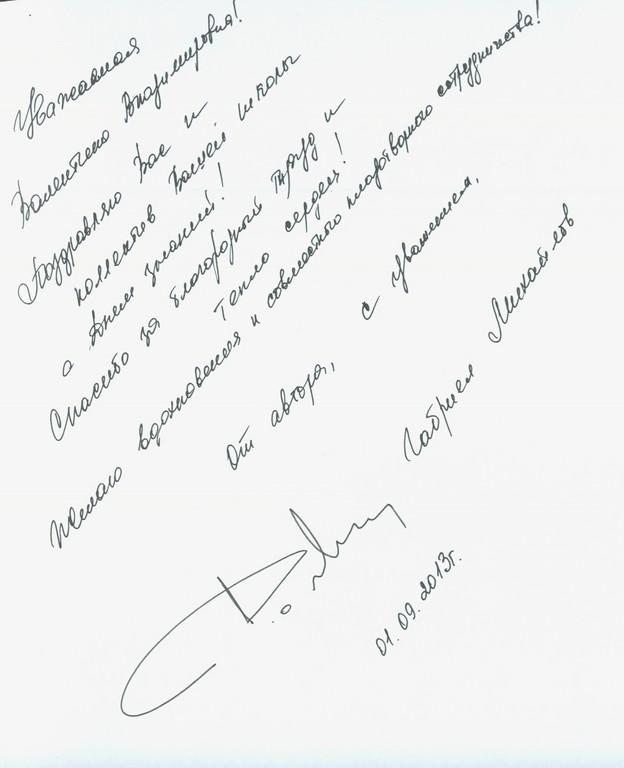 Уважаемая
Валентина Владимировна!
Поздравляю Вас и
коллектив Вашей школы
с Днем знаний!
Спасибо за благородный труд и
тепло сердец!
Желаю вдохновения и совместного плодотворного сотрудничества!
От автора,
с уважением,
Габриел Михайлов
01.09.2013г.